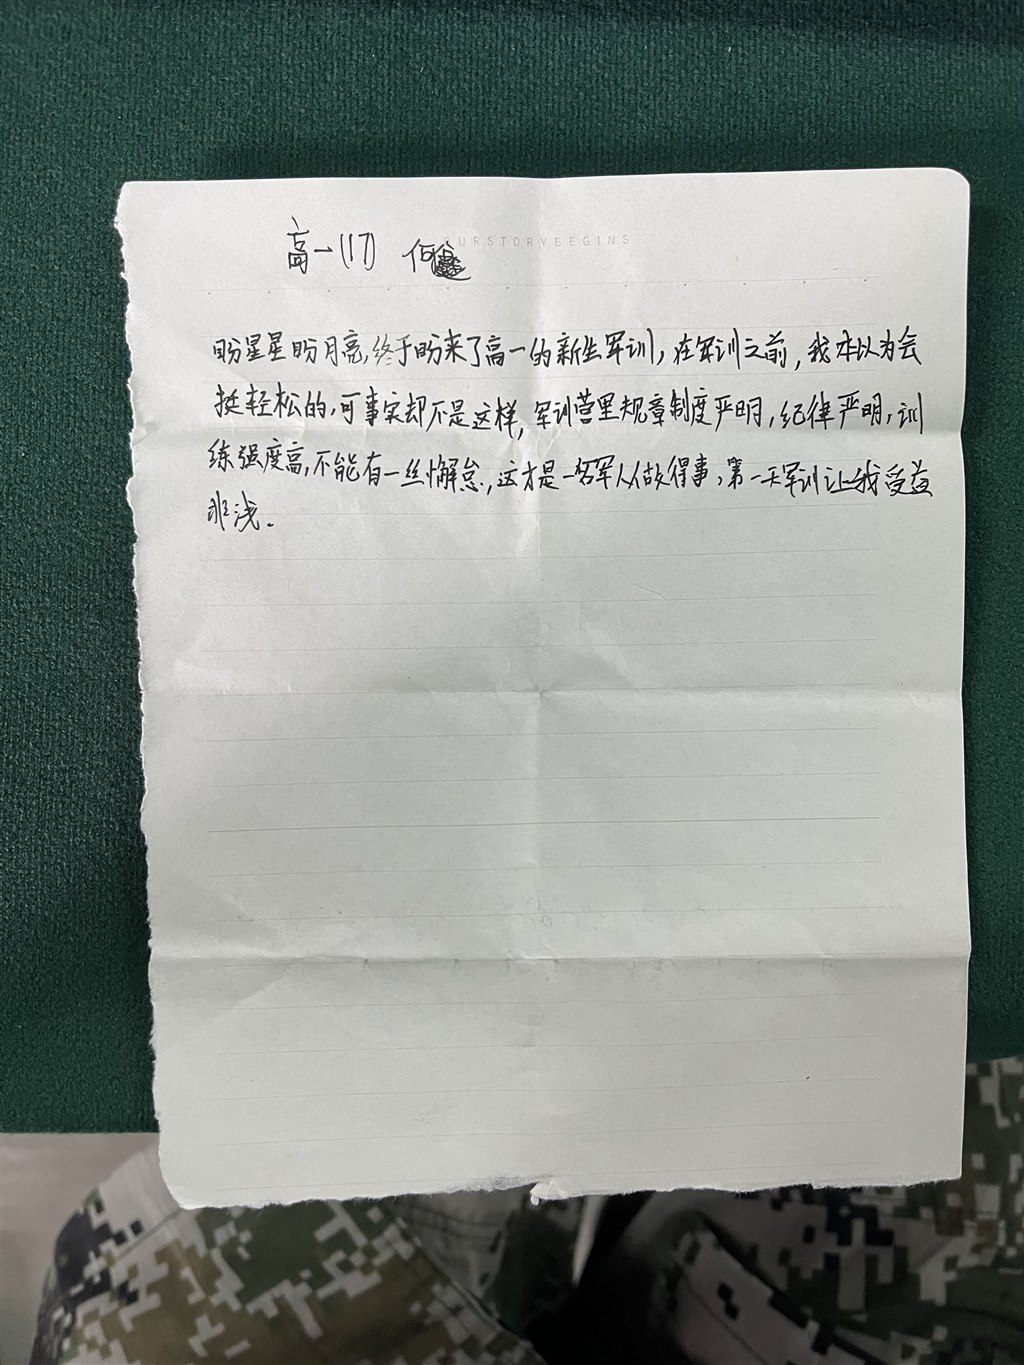 URSTORYBEGINS
高一(17) 何
盼星星盼月亮,终于盼来了高一的新生军训,在军训之前,我本以为会
挺轻松的,可事实却不是这样,军训营里规章制度严明,纪律严明,训
练强度高,不能有一丝懈怠,这才是一名军人做得事,第一天军训让我受益
非浅。